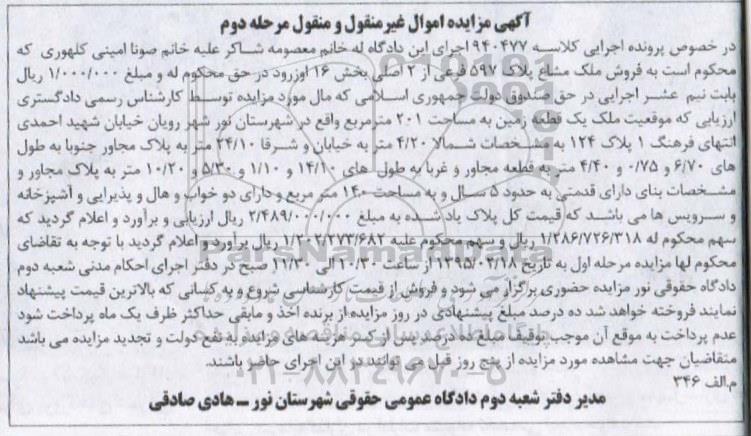 آگهی مزایده اموال غیرمنقول و منقول مرحله دوم
در خصوص پرونده اجرایی کلاسه ۹۴۰۴۷۷ اجرای این دادگاه له خانم معصومه شاکر علیه خانم صونا امینی کلهوری که
محکوم است به فروش ملک مشاع پلاک ۵۹۷ فرعی از ۲ اصلی بخش ۱۶ اوزرود در حق محکوم له و مبلغ ۱/۰۰۰/۰۰۰ ریال
بابت نیم عشر اجرایی در حق صندوق دولت جمهوری اسلامی که مال مورد مزایده توسط کارشناس رسمی دادگستری
ارزیابی که موقعیت ملک یک قطعه زمین به مساحت ۲۰۱ مترمربع واقع در شهرستان نور شهر رویان خیابان شهید احمدی
انتهای فرهنگ ۱ پلاک ۱۲۴ به مشخصات شمالا ۴/۲۰ متر به خیابان و شرقا ۲۴/۱۰ متر به پلاک مجاور جنوبا به طول
های ۶/۷۰ و ۰/۷۵ و ۴/۴۰ متر به قطعه مجاور و غربا به طول های ۱۴/۱۰ و ۱/۱۰ و ۵/۳۰ و ۱۰/۲۰ متر به پلاک مجاور و
مشخصات بنای دارای قدمتی به حدود ۵ سال و به مساحت ۱۴۰ متر مربع و دارای دو خواب و هال و پذیرایی و آشپزخانه
و سرویس ها می باشد که قیمت کل پلاک یاد شده به مبلغ ۲/۴۸۹/۰۰۰/۰۰۰ ریال ارزیابی و برآورد و اعلام گردید که
سهم محکوم له ۱/۲۸۶/۷۲۶/۳۱۸ ریال و سهم محکوم علیه ۱/۲۰۲/۲۷۳/۶۸۲ ریال برآورد و اعلام گردید با توجه به تقاضای
محکوم لها مزایده مرحله اول به تاریخ ۱۳۹۵/۰۲/۱۸ از ساعت ۱۰:۳۰ الی ۱۱/۳۰ صبح در دفتر اجرای احکام مدنی شعبه دوم
دادگاه حقوقی نور مزایده حضوری برگزار می شود و فروش از قیمت کارشناسی شروع و به کسانی که بالاترین قیمت پیشنهاد
نمایند فروخته خواهد شد ده درصد مبلغ پیشنهادی در روز مزایده از برنده اخذ و مابقی حداکثر ظرف یک ماه پرداخت شود
عدم پرداخت به موقع آن موجب توقیف مبلغ ده درصد پس از کسر هزینه های مزایده به نفع دولت و تجدید مزایده می باشد
متقاضیان جهت مشاهده مورد مزایده از پنج روز قبل می توانند در این اجرای حاضر باشند.
م.الف ۳۴۶
مدیر دفتر شعبه دوم دادگاه عمومی حقوقی شهرستان نور ــ هادی صادقی
ParsNamadData
۰۲۱-۸۸۳۴۹۶۷۰-۵